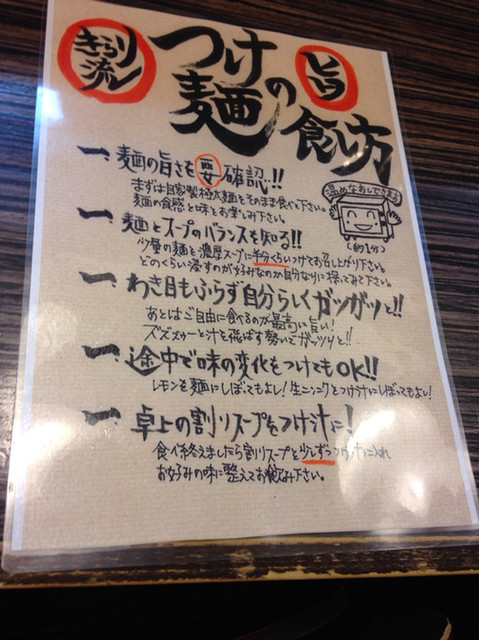 きらり流
つけ麺の
旨い
食し方
一、麺の旨さを要確認!!
まずは自家製極太麺をそのまま食べ下さい。
麺の食感と味とお楽しみ下さい。
温めなおしできます
(約1分)
一、麺とスープのバランスを知る!!
少量の麺を濃厚スープに半分くらいつけてお召し上がり下さい。
どのくらい浸すのが好みなのか自分なりに探ってみて下さい。
一、わき目もふらず自分らしくガツガツと!!
あとはご自由に食べるのが最高に旨い!
ズズズゥーと汁を飛ばす勢いでガッツリと!!
一、途中で味の変化をつけてもOK!!
レモンを麺にしぼってもよし!生ニンニクをつけ汁にしぼってもよし!
一、卓上の割りスープをつけ汁に!
食べ終えましたら割りスープを少しずつつけ汁に入れ
お好みの味に整えてお飲み下さい。